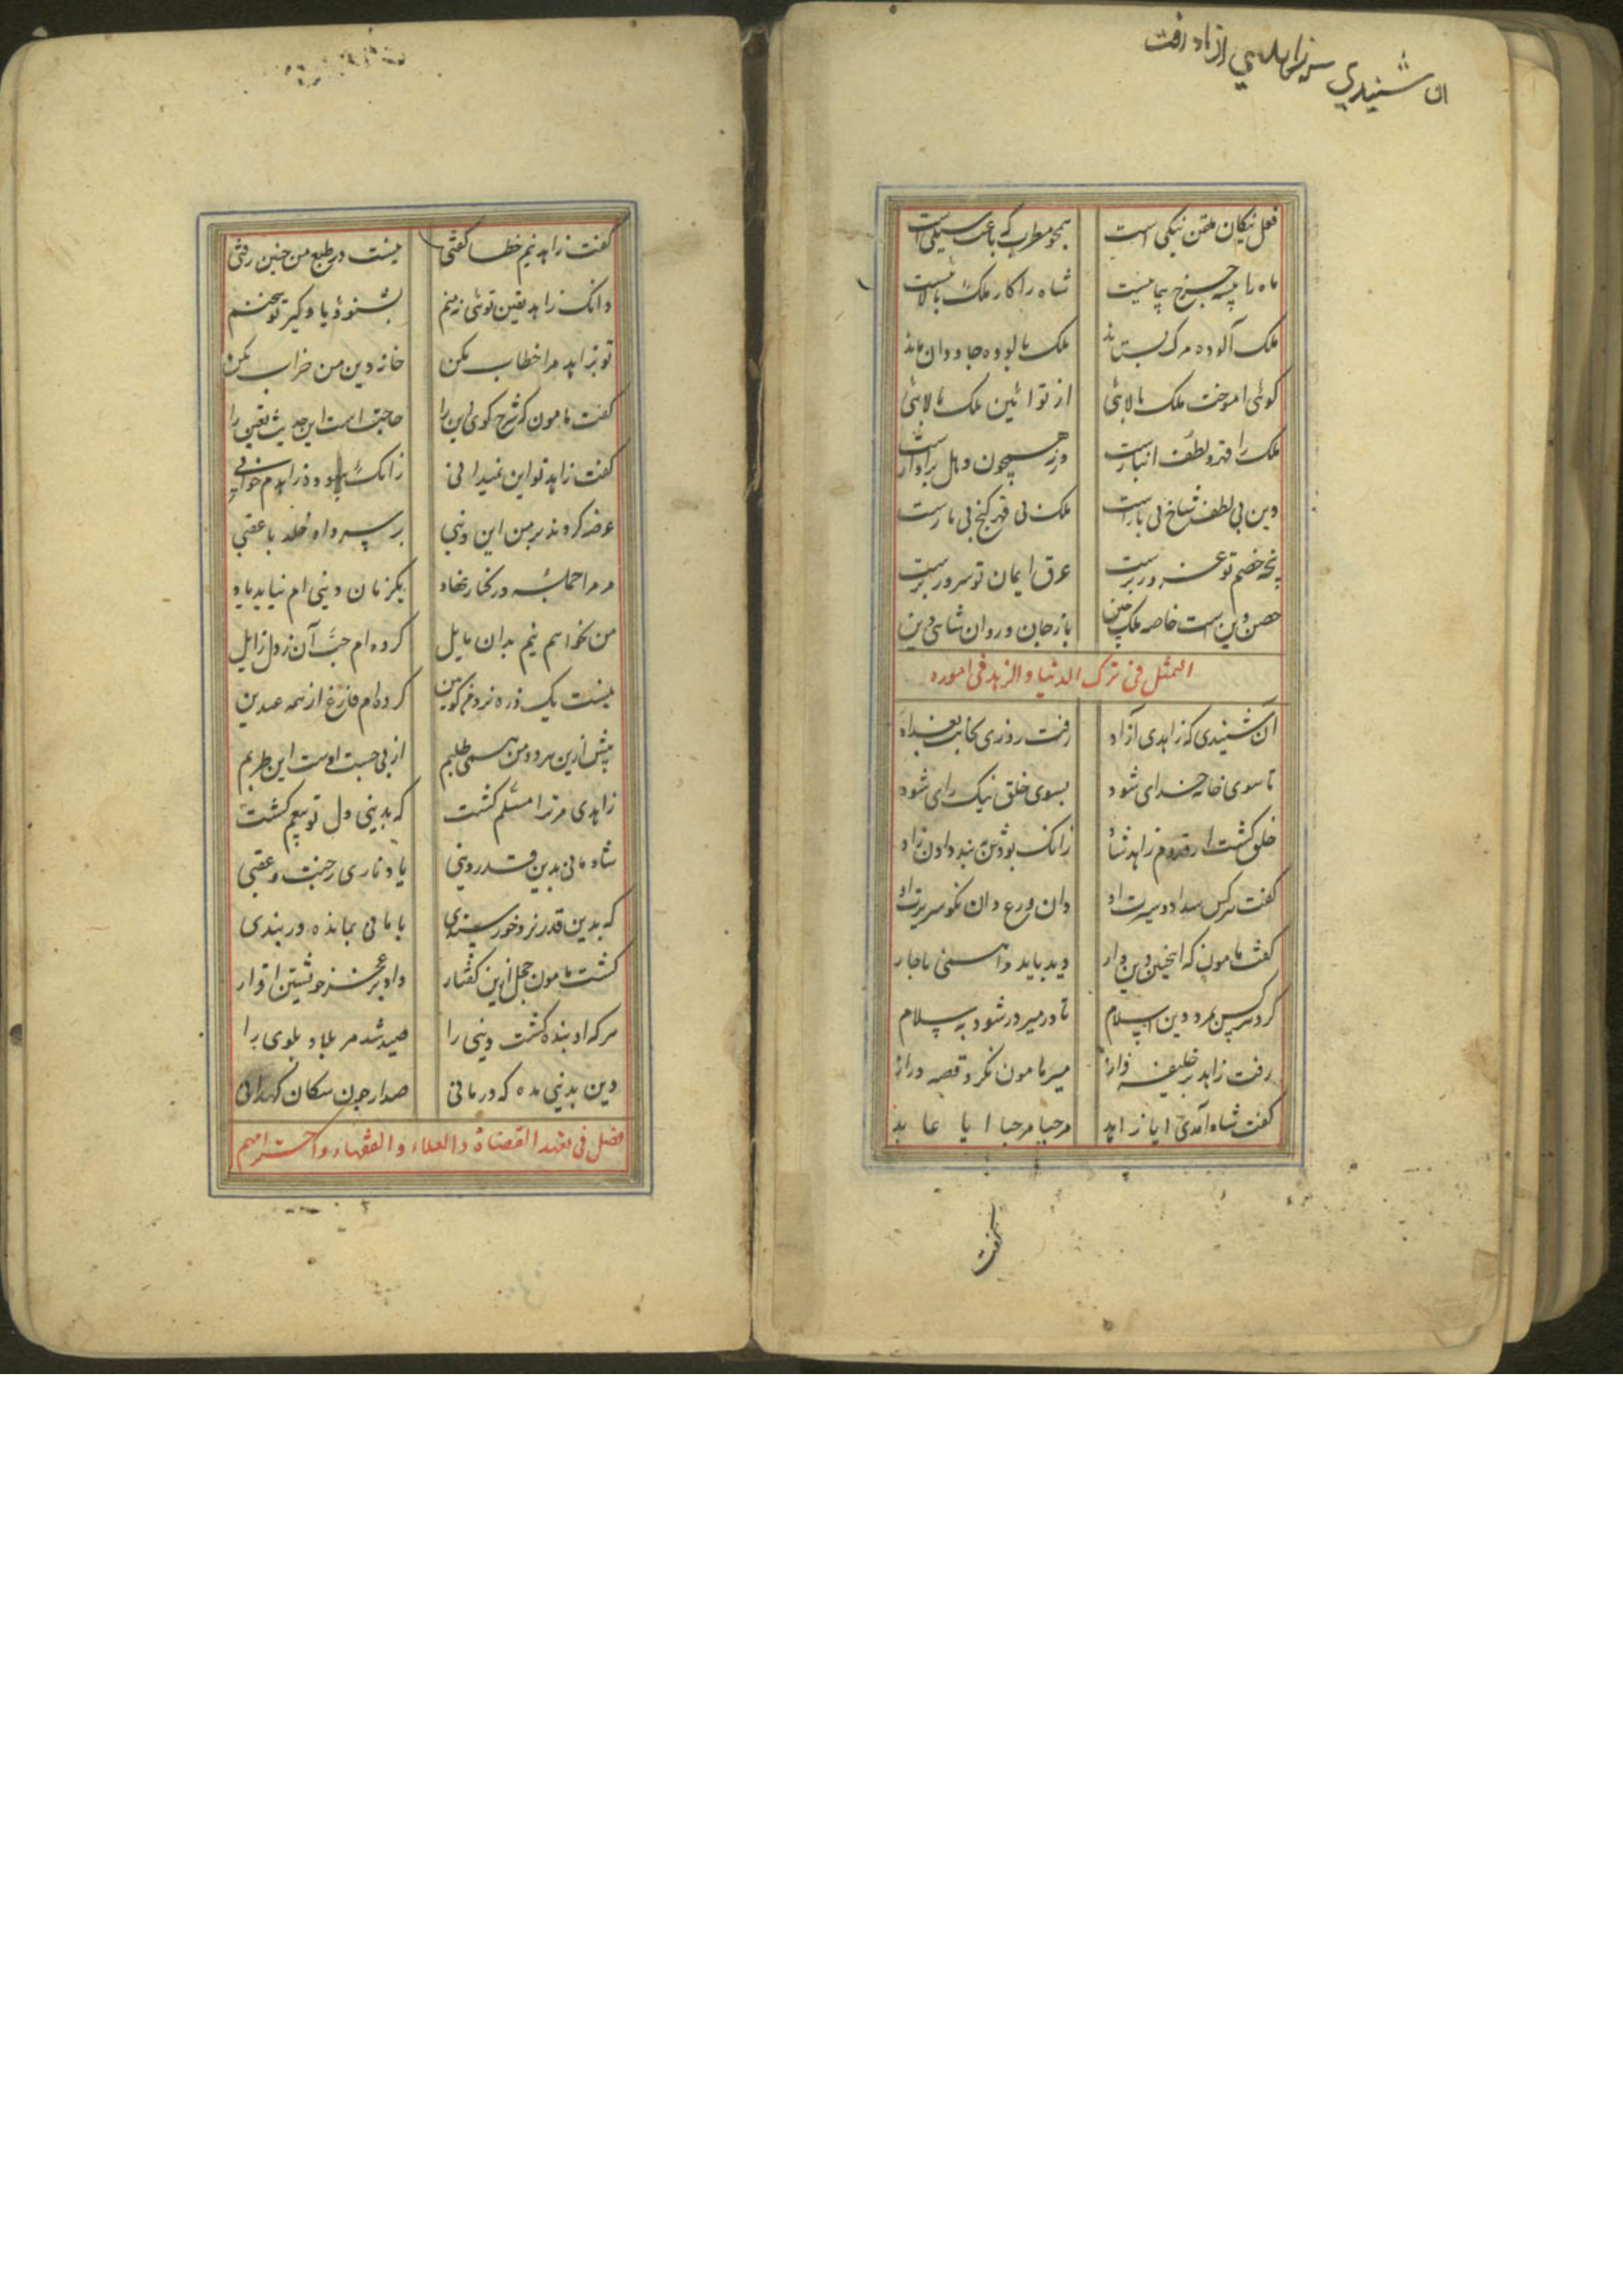 ان شنیدی زاهدی ازاد رفت
فعل نیکان ملقن نیکی است همچو مطرب که باعث سیکی است
ماه را پیشه جز پیمانیست شاه را کار ملک بالا نیست
ملک آلوده مرگ بستاند ملک پالوده جاودان ماند
گوئی اموخت ملک بالائی از تو ائین ملک بالائی
ملک را قهر و لطف انبازست ورنه همچون دهل پرآوازست
دین بی لطف شاخ بی بارست ملک بی قهر گنج بی مارست
پنجه خصم تو عز ورز برست عرق ایمان تو سرور برست
حصن دین است خاصه ملک چنین باز جان و روان شاهی دین
التمثل فی ترک الدنیا والزهد فی اموره
آن شنیدی که زاهدی آزاد رفت روزی بجانب بغداد
تا سوی خانه خدای شود بسوی خلق نیک رای شود
خلق گشت از قدوم زاهد شاد زانک بودش پند دادن زاد
گفت هرکس سداد و سیرت او وان ورع وان نکو سریرت او
گفت مامون که اینچنین دین دار دید باید و را همی ناچار
کرد هرکس بمرد دین اسلام تا در میر در شود به سلام
رفت زاهد بر خلیفه فراز میر مامون نکرد قصه دراز
گفت شاد آمدی ایا زاهد مرحبا مرحبا ایا عابد
گفت
گفت زاهد نیم خطا گفتی نیست در طبع من چنین زفتی
دانک زاهد یقین توئی نه منم بشنو و یاد گیر تو سخنم
تو بزاهد مرا خطاب مکن خانه دین من خراب مکن
گفت مامون که شرح گوی این را حاجت است این حدیث تعین را
گفت زاهد تو این نمیدانی زانک بیهوده زاهدم خوانی
عرضه کردند بر من این دنیی بر سر داد خلد با عقبی
مر مرا جمله در کنار نهاد یکزمان دینی ام نیاید یاد
من نخواهم نیم بدان مایل کرده ام حب آن ز دل زایل
نیست یک ذره نزد من کونین کرده ام فارغ از همه عیدین
بیش ازین هر دو من همی طلبم از پی جست اوست این طربم
زاهدی مر ترا مسلم گشت که بدینی دل تو بیغم گشت
شادمانی بدین قدر دینی یاد ناری ز جنت و عقبی
که بدین قدر نزد خود خرسندی با مانی بمانده در بندی
گشت مامون خجل ازین گفتار داد بر عجز خویشتن اقرار
هرکه او بنده گشت دینی را صید شد مر بلا و بلوی را
دین بدینی مده که درمانی صدارجون سکان کهدانی
فصل فی تفقد القضاة والعلماء والفقهاء واحترامهم